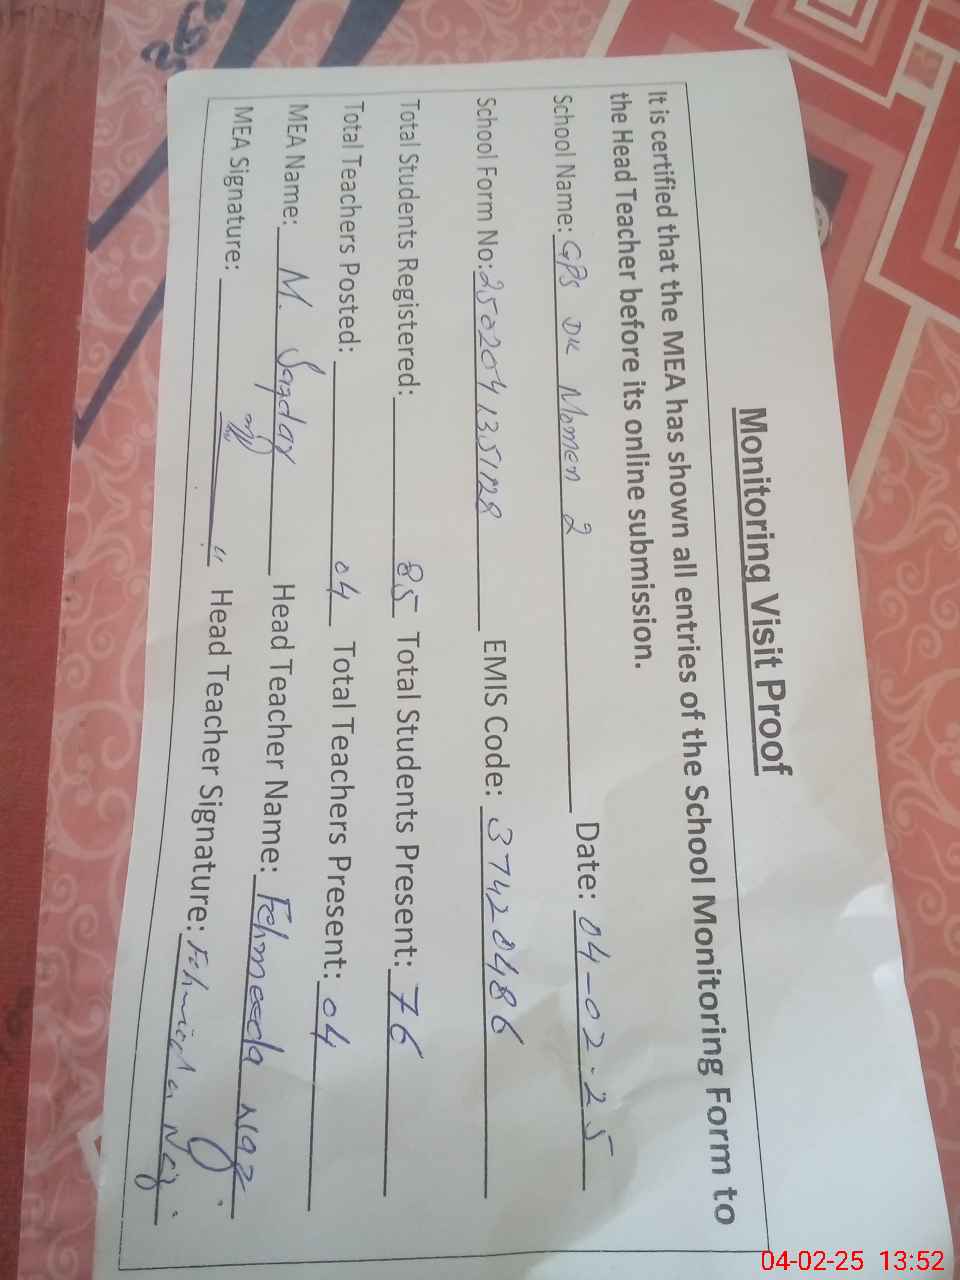 Monitoring Visit Proof
It is certified that the MEA has shown all entries of the School Monitoring Form to
the Head Teacher before its online submission.
School Name: GPS DK Momen 2 Date: 04-02-25
School Form No: EMIS Code: 37420486
Total Students Registered: 85 Total Students Present: 76
Total Teachers Posted: 04 Total Teachers Present: 04
MEA Name: M. Head Teacher Name: Fehmeeda Naz
MEA Signature: Head Teacher Signature: Fehmeeda Naz
04-02-25 13:52